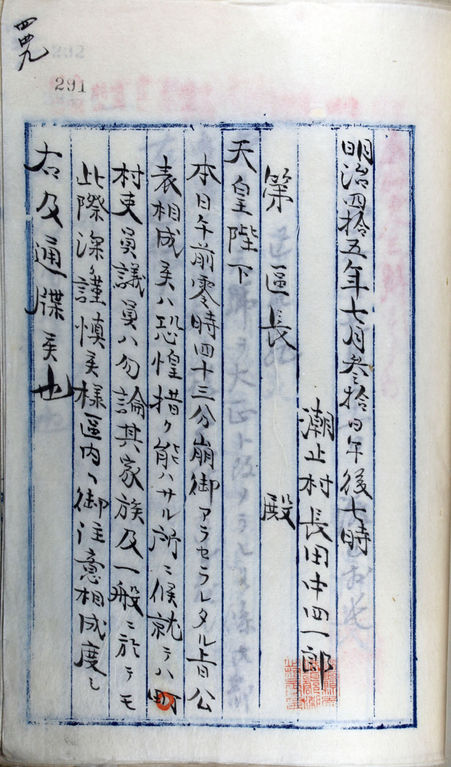 明治四拾五年七月参拾日午後七時
潮止村長田中四一郎
第 區長 殿
天皇陛下
本日午前零時四十三分崩御アラセラレタル旨公
表相成候ハ恐惶措ク能ハサル所ニ候就テハ
村吏員議員ハ勿論其家族及一般ニ於テモ
此際深ク謹慎候様區内ヘ御注意相成度
右及通牒候也
291